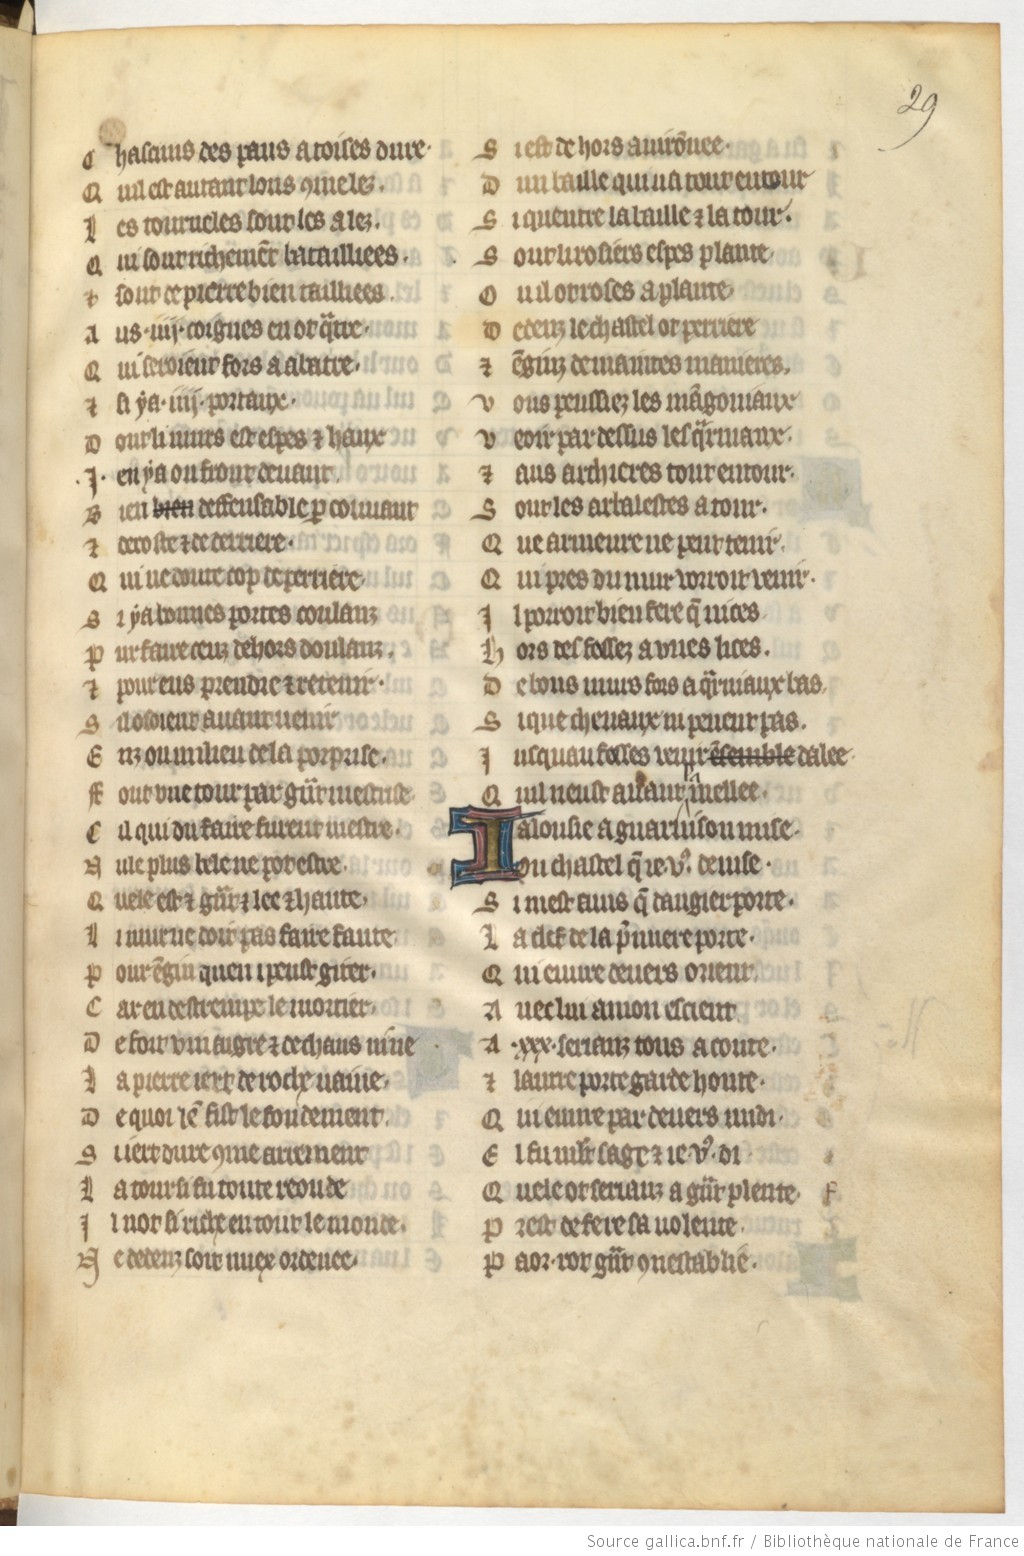 29
C hascuns des pans a toises dure·
Q uil est autant lons 9me lez·
L es tourneles sont les a lez·
Q ui sont richemēt bataillees·
⁊ sont de pierre bien tailliees·
A us ·iiij· coignes en or q̄tre·
Q ui seroient fors a abatre·
⁊ si ya ·iiij· portaux·
D ont li murs est espes ⁊ haux
·I· en ya ou front deuant
B ien bien deffensable p̱ couuant
⁊ de coste ⁊ de derriere·
Q ui ne doute cop de perriere
S i ya bonnes portes coulanz
P ur faire ceuz dehors doulanz·
⁊ pour eus prendre ⁊ retenir·
S il osoient auant uenir
E nz ou milieu de la porprise·
ff ont vne tour par gñt mestrise
C il qui du faire furent mestre·
N ule plus bele ne pot estre·
Q uele est ⁊ gñt ⁊ lee ⁊ haute·
L i mur ne doit pas faire faute
P our ēgin quen i peust giter·
C ar en destrempe le mortier
D e fort vin aigre ⁊ de chaus uiue
L a pierre iert de roche naiue·
D e quoi lē fist le fondement
S i iert dure 9me arrement
L a tour si fu toute reonde
I l not si riche en tout le monde·
N e dedenz soit miex ordenee·
S i est de hors auirōnee·
D un baille qui ua tout entour
S i quentre la baille ⁊ la tour·
S ont li rosiers espes plante
O u il ot roses a plante
D edenz le chastel ot perriere
⁊ ēginz de maintes manieres·
V ous peussiez les mãgoniaux
V eoir par dessus les q̄rniaux·
⁊ aus archieres tout entour·
S ont les arbalestes a tour·
Q ue armeure ne peut tenir·
Q ui pres du mur vorroit venir·
I l porroit bien fere q̄ nices
H ors des fossez a vnes lices·
D e bons murs fors a q̄rniaux bas·
S i que cheuaux ni peuent pas·
I usquau fosses venir ēsemble dalee
Q uil neust auant mellee·
I alousie a guarnison mise·
Ou chastel q̄ ie v9 deuise·
S i mest auis q̄ dangier porte·
L a clef de la p̄miere porte·
Q ui euure deuers orient
A uec lui a mon escient
A ·xxx· serianz tous a conte·
⁊ lautre porte garde honte·
Q ui euure par deuers midi·
E l fu mlt sage ⁊ ie v9 di·
Q uele ot serianz a gñt plente·
P rest de fere sa uolente·
P aor rot gñt 9nestablie·
Source gallica.bnf.fr / Bibliothèque nationale de France